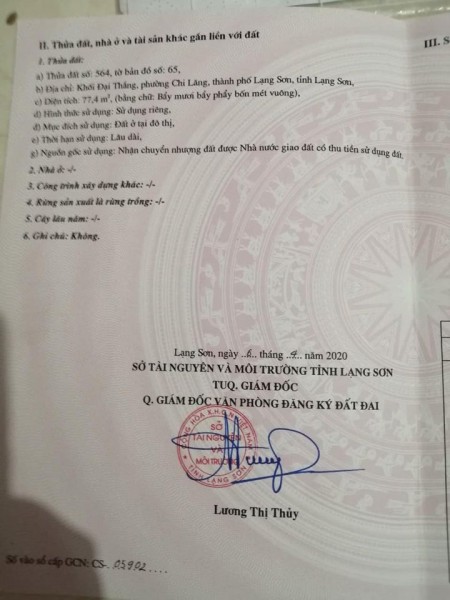 II. Thửa đất, nhà ở và tài sản khác gắn liền với đất
III. S
1. Thửa đất:
a) Thửa đất số: 564, tờ bản đồ số: 65,
b) Địa chỉ: Khối Đại Thắng, phường Chi Lăng, thành phố Lạng Sơn, tỉnh Lạng Sơn,
c) Diện tích: 77,4 m², (bằng chữ: Bẩy mươi bẩy phẩy bốn mét vuông),
d) Hình thức sử dụng: Sử dụng riêng,
đ) Mục đích sử dụng: Đất ở tại đô thị,
e) Thời hạn sử dụng: Lâu dài,
g) Nguồn gốc sử dụng: Nhận chuyển nhượng đất được Nhà nước giao đất có thu tiền sử dụng đất.
2. Nhà ở: -/-
3. Công trình xây dựng khác: -/-
4. Rừng sản xuất là rừng trồng: -/-
5. Cây lâu năm: -/-
6. Ghi chú: Không.
Lạng Sơn, ngày tháng năm 2020
SỞ TÀI NGUYÊN VÀ MÔI TRƯỜNG TỈNH LẠNG SƠN
TUQ. GIÁM ĐỐC
Q. GIÁM ĐỐC VĂN PHÒNG ĐĂNG KÝ ĐẤT ĐAI
CỘNG HÒA X.H.C.N VIỆT NAM
SỞ
TÀI NGUYÊN
VÀ
MÔI TRƯỜNG
TỈNH LẠNG SƠN
Lương Thị Thủy
Số vào sổ cấp GCN: CS-05902....